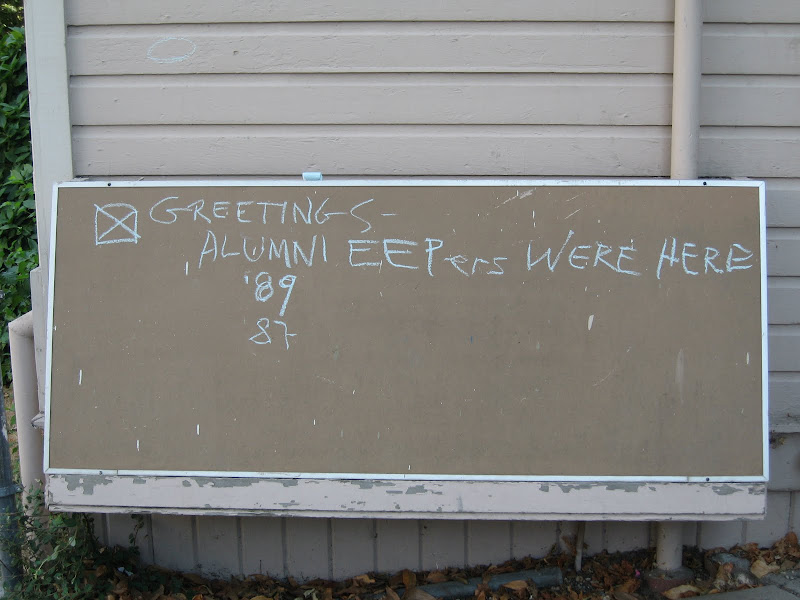 GREETINGS-
ALUMNI EEPers WERE HERE
'89
87